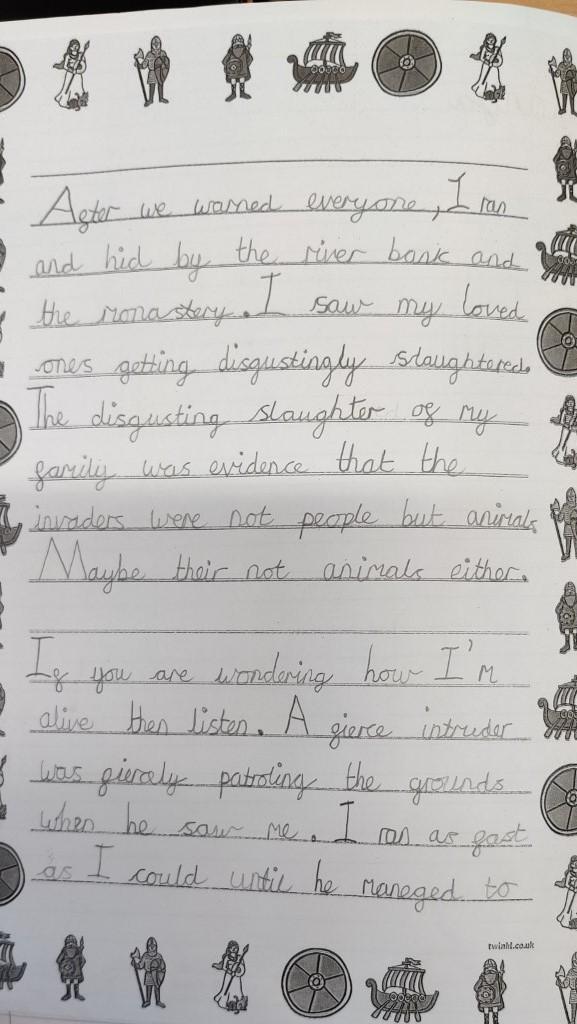 After we warned everyone, I ran
and hid by the river bank and
the monastery. I saw my loved
ones getting disgustingly slaughtered.
The disgusting slaughter of my
family was evidence that the
invaders were not people but animals
Maybe their not animals either.
If you are wondering how I'm
alive then listen. A fierce intruder
was fiercely patroling the grounds
when he saw me. I ran as fast
as I could until he maneged to
twinkl.co.uk